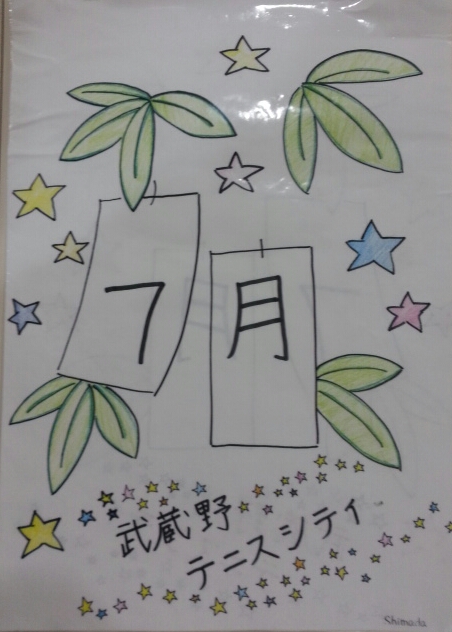 7月
武蔵野
テニスシティ
Shimada